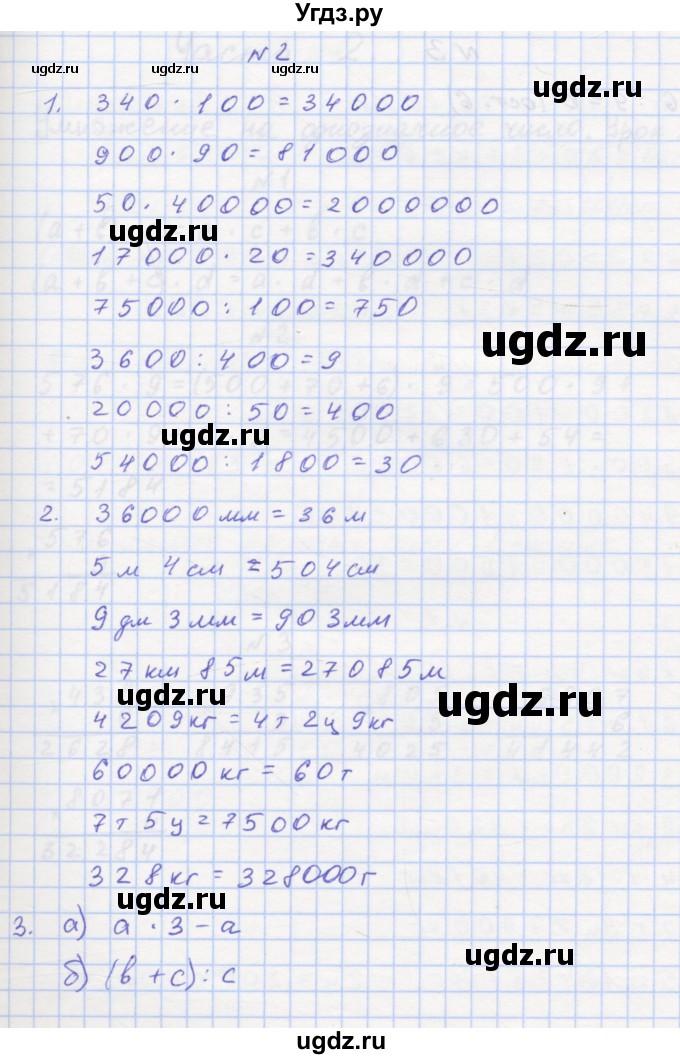 Угдз.ру
№2
1. 340 · 100 = 34000
900 · 90 = 81000
50 · 40000 = 2000000
17000 · 20 = 340000
75000 : 100 = 750
3600 : 400 = 9
20000 : 50 = 400
54000 : 1800 = 30
2. 36000 мм = 36 м
5 м 4 см = 504 см
9 дм 3 мм = 903 мм
27 км 85 м = 27085 м
4209 кг = 4 т 2 ц 9 кг
60000 кг = 60 т
7 т 5 ц = 7500 кг
328 кг = 328000 г
3. а) а · 3 - а
б) (в + с) : с
ugdz.ru
ugdz.ru
ugdz.ru
ugdz.ru
ugdz.ru
ugdz.ru
ugdz.ru
ugdz.ru
ugdz.ru
ugdz.ru
ugdz.ru
ugdz.ru